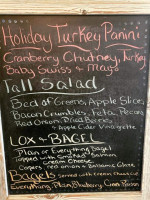 Holiday Turkey Panini
Cranberry Chutney, Turkey
Baby Swiss & Mayo
Fall Salad
Bed of Greens, Apple Slices,
Bacon Crumbles, Feta, Pecans
Red Onion, Blueberries
& Apple Cider Vinaigrette
LOX & BAGEL
Plain or Everything Bagel
Topped with Smoked Salmon
Cream Cheese
Capers, Red onion & Balsamic Glaze
BAGELS Served with Cream Cheese
Everything, Plain, Blueberry, Cinn Raisin